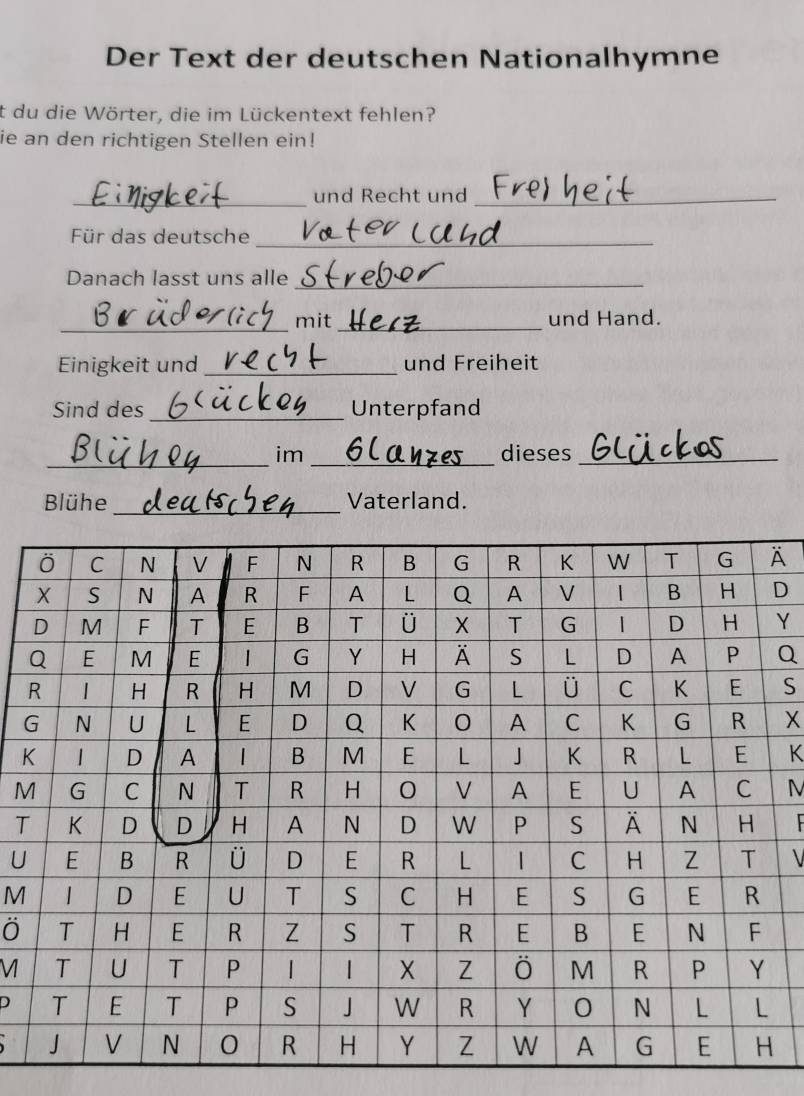 Der Text der deutschen Nationalhymne
t du die Wörter, die im Lückentext fehlen?
ie an den richtigen Stellen ein!
Einigkeit und Recht und Freiheit
Für das deutsche Vaterland
Danach lasst uns alle Streber
Brüderlich mit Herz und Hand.
Einigkeit und recht und Freiheit
Sind des Glücken Unterpfand
Blühen im Glanzes dieses Glückes
Blühe deutschen Vaterland.
Ö C N V F N R B G R K W T G Ä
X S N A R F A L Q A V I B H D
D M F T E B T Ü X T G I D H Y
Q E M E I G Y H Ä S L D A P Q
R I H R H M D V G L Ü C K E S
G N U L E D Q K O A C K G R X
K I D A I B M E L J K R L E K
M G C N T R H O V A E U A C N
T K D D H A N D W P S Ä N H F
U E B R Ü D E R L I C H Z T V
M I D E U T S C H E S G E R
Ö T H E R Z S T R E B E N F
M T U T P I I X Z Ö M R P Y
P T E T P S J W R Y O N L L
S J V N O R H Y Z W A G E H